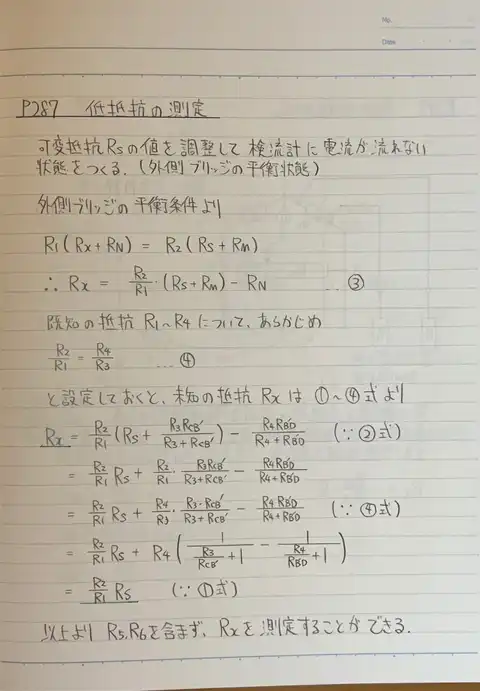 No.
Date
P287 低抵抗の測定
可変抵抗Rsの値を調整して検流計に電流が流れない
状態をつくる.(外側ブリッジの平衡状態)
外側ブリッジの平衡条件より
R1(Rx+RN) = R2(Rs+RM)
∴ Rx = R2/R1・(Rs+RM) - RN …③
既知の抵抗 R1~R4について、あらかじめ
R2/R1 = R4/R3 …④
と設定しておくと、未知の抵抗 Rxは ①~④式より
Rx = R2/R1 (Rs + R3RCB'/(R3+RCB')) - R4RB'D/(R4+RB'D) (∵②式)
= R2/R1 Rs + R2/R1・R3RCB'/(R3+RCB') - R4RB'D/(R4+RB'D)
= R2/R1 Rs + R4/R3・R3・RCB'/(R3+RCB') - R4・RB'D/(R4+RB'D) (∵④式)
= R2/R1 Rs + R4(1/(R3/RCB'+1) - 1/(R4/RB'D+1))
= R2/R1 Rs (∵①式)
以上より R5,R6を含まず、Rxを測定することができる.